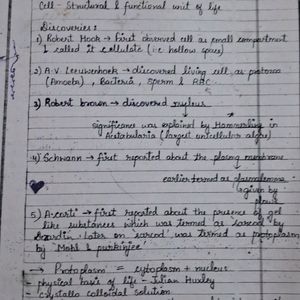 Cell - Structural & functional unit of life
Discoveries :
1) Robert Hook → first observed cell as small compartment
& called it cellulate (i.e hollow space)
2) A.V. Leeuwenhoek → discovered living cell as protozoa
(Amoeba), Bacteria, Sperm & RBC.
3) Robert brown → discovered nucleus
significance was explained by Hammerling in
Acetabularia (largest unicellular algae)
4) Schwann → first reported about the plasma membrane
earlier termed as plasmalemma
given by
5) → first reported about the presence of gel
like substances which was termed as sarcod by
later on sarcod was termed as protoplasm
by 'Mohl & purkinjee'
→ Protoplasm = cytoplasm + nucleus
- physical basis of life - Julian Huxley
- crystallo colloidal solution